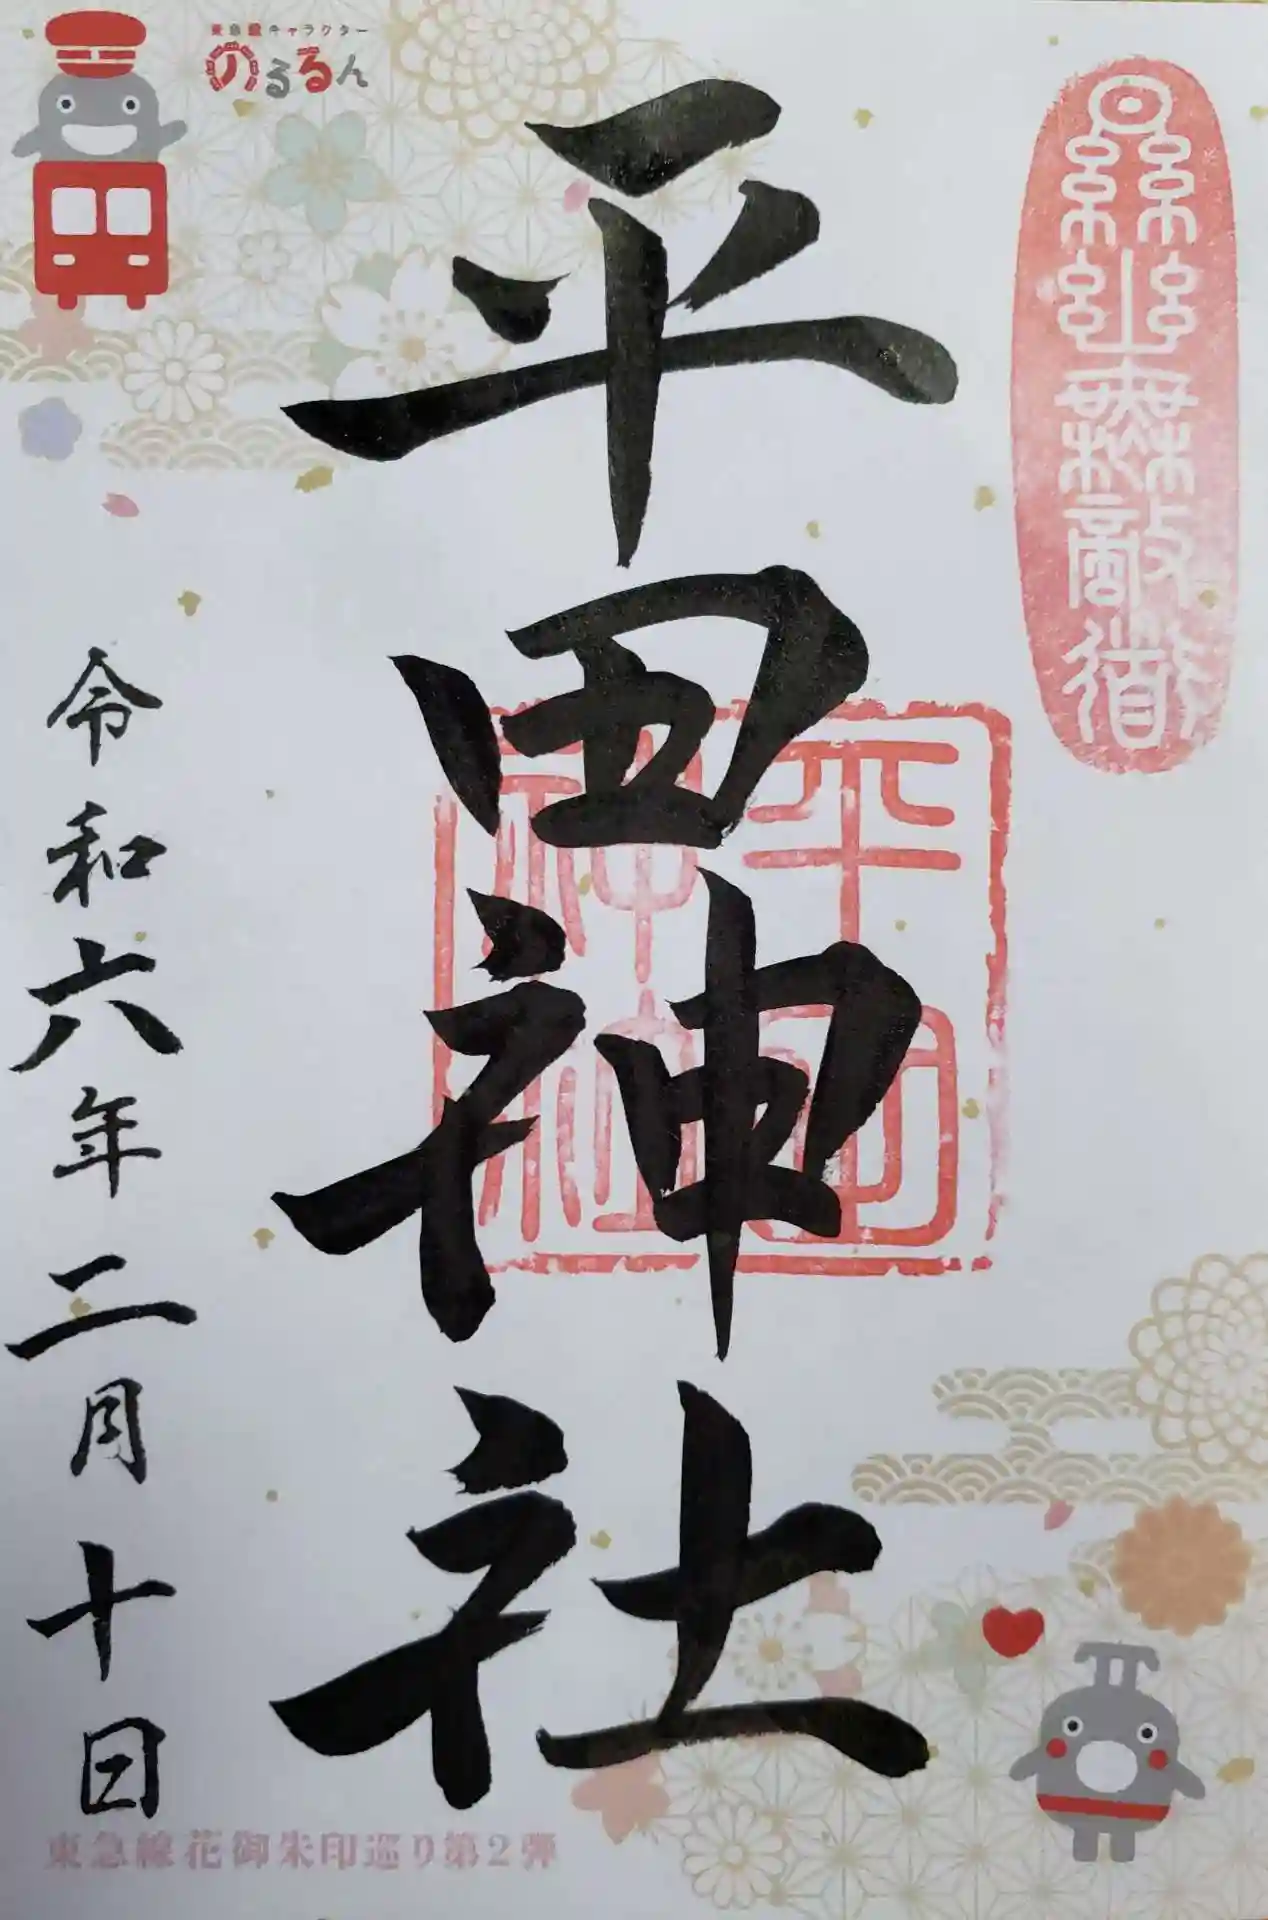 東急線キャラクター
のるるん
平田神社
平田
神社
令和六年二月十日
東急線花御朱印巡り第2弾